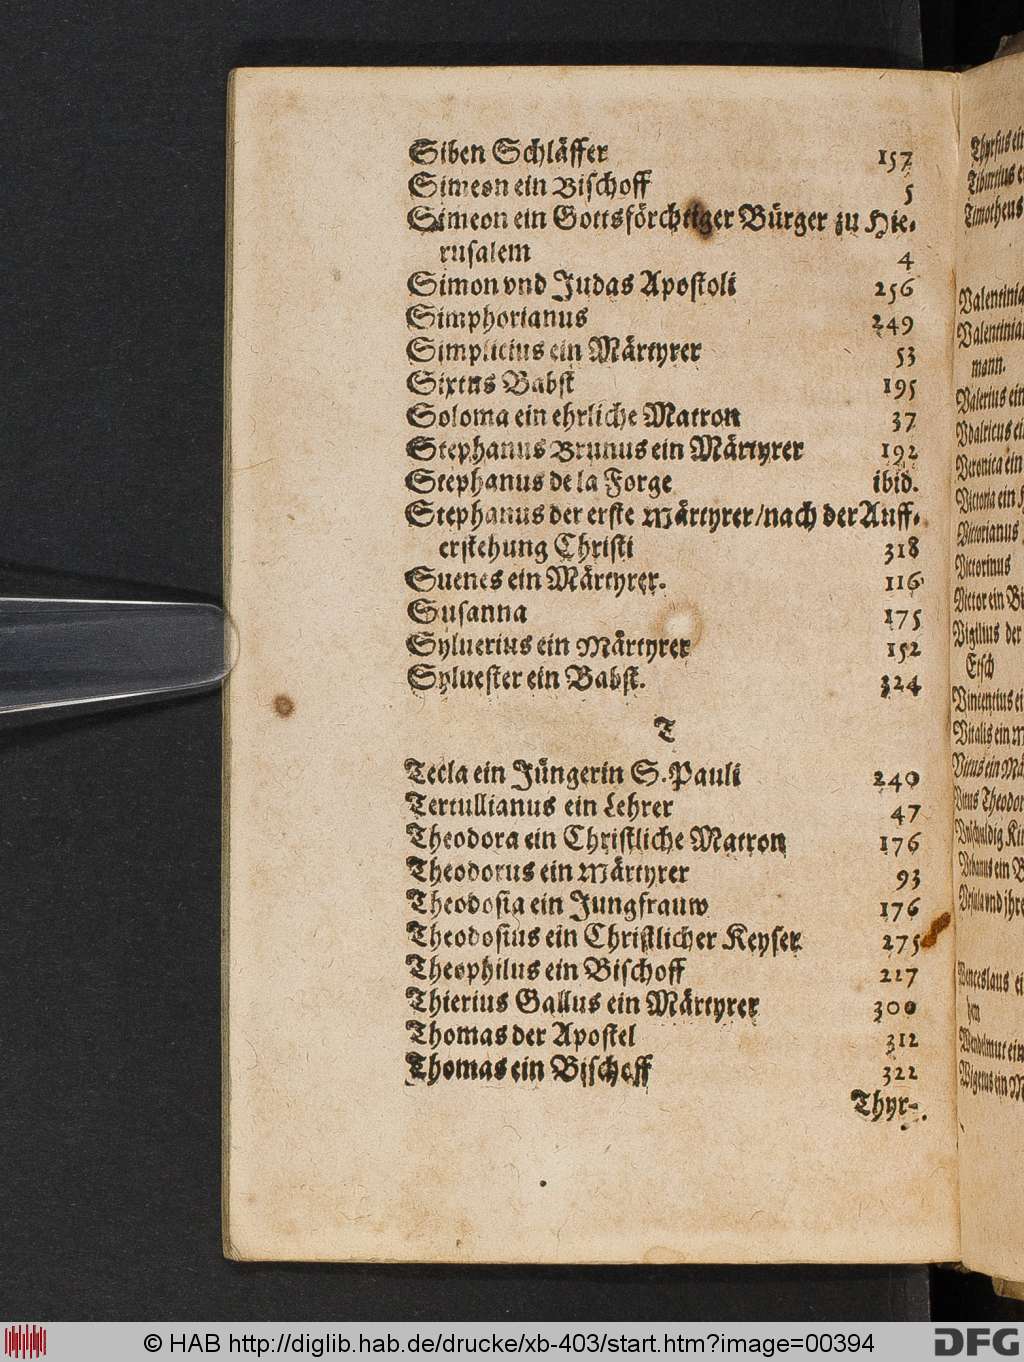 Siben Schläffer 157
Simeon ein Bischoff 5
Simeon ein Gottsförchtiger Bürger zu Hie-
rusalem 4
Simon vnd Judas Apostoli 256
Simphorianus 249
Simplicius ein Märtyrer 53
Sixtus Babst 195
Soloma ein ehrliche Matron 37
Stephanus Brunus ein Märtyrer 192
Stephanus de la Forge ibid.
Stephanus der erste Märtyrer/nach der Auff-
erstehung Christi 318
Suenes ein Märtyrer. 116
Susanna 175
Syluerius ein Märtyrer 152
Syluester ein Babst. 324
T
Tecla ein Jüngerin S. Pauli 240
Tertullianus ein Lehrer 47
Theodora ein Christliche Matron 176
Theodorus ein Märtyrer 93
Theodosia ein Jungfrauw 176
Theodosius ein Christlicher Keyser 275
Theophilus ein Bischoff 217
Thierius Gallus ein Märtyrer 300
Thomas der Apostel 312
Thomas ein Bischoff 322
Thyr-
Thyrsus ein
Tiburtius e
Timotheus
Valentinia
Valentinia
mann.
Valerius ein
Vdalricus ei
Veronica ein
Victoria ein
Victorianus
Victorinus
Victor ein Bi
Vigilius der
Etsch
Vincentius ei
Vitalis ein M
Vitus ein Mä
Vitus Theodor
Vnschuldig Ki
Vrbanus ein B
Vrsula vnd jhre
Wenceslaus ei
Wendelmut ein
Wigenus ein M
© HAB http://diglib.hab.de/drucke/xb-403/start.htm?image=00394
DFG